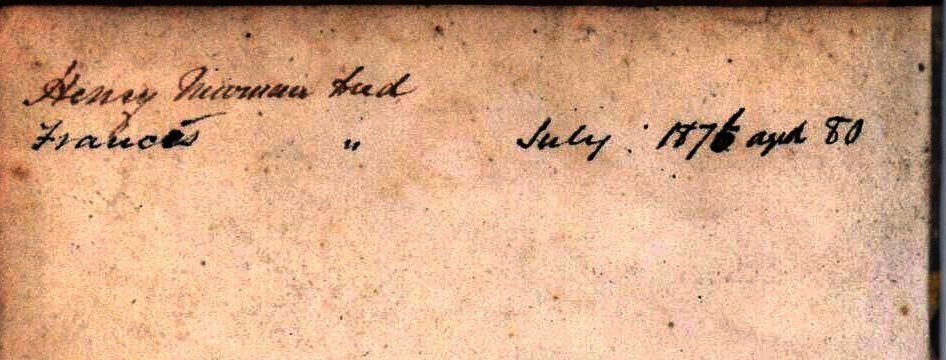 Henry Newman died
Frances " July 1876 aged 80